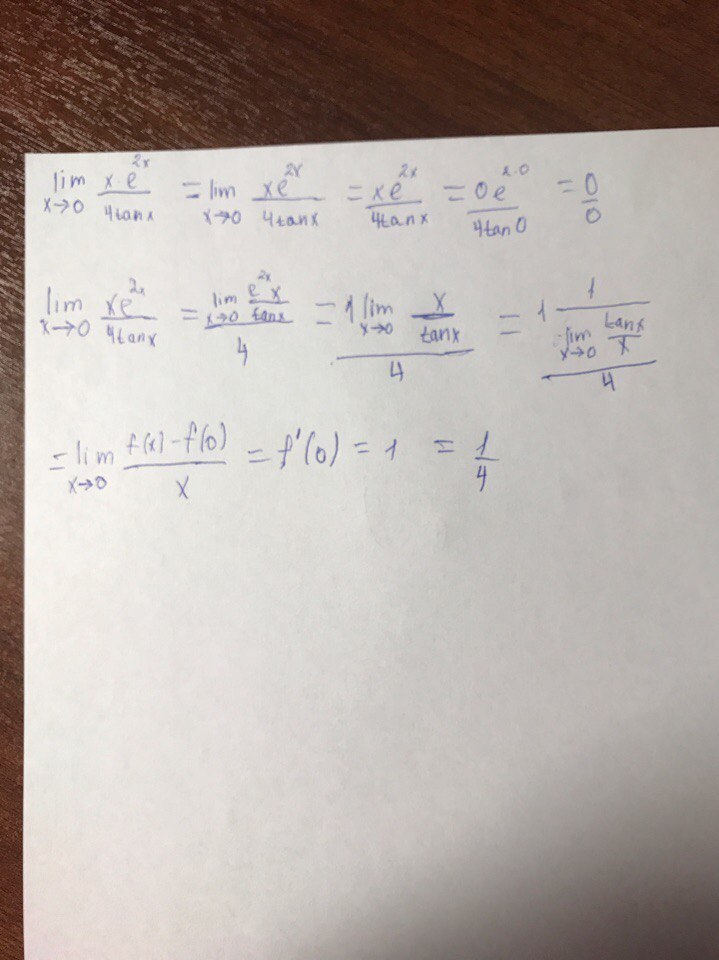 lim x→0 x·e^2x / 4tanx = lim x→0 xe^2x / 4tanx = xe^2x / 4tanx = 0e^2·0 / 4tan0 = 0/0
lim x→0 xe^2x / 4tanx = (lim x→0 e^2x x / tanx) / 4 = (1 lim x→0 x / tanx) / 4 = (1 1 / (lim x→0 tanx / x)) / 4
= lim x→0 f(x) - f(0) / x = f'(0) = 1 = 1/4